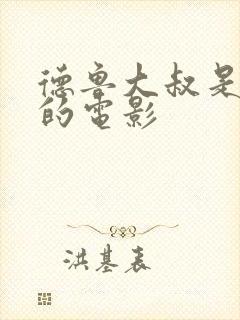 德鲁大叔是
的电影
洪基表